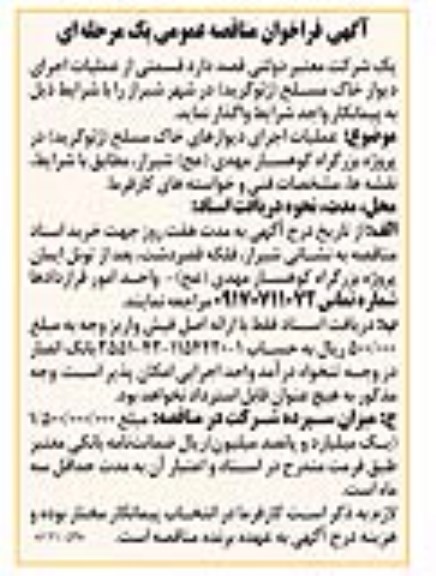 آگهی فراخوان مناقصه عمومی یک مرحله ای
یک شرکت معتبر دولتی قصد دارد قسمتی از عملیات اجرای
دیوار خاک مسلح (ژئوگرید) در شهر شیراز را با شرایط ذیل
به پیمانکار واجد شرایط واگذار نماید.
موضوع: عملیات اجرای دیوارهای خاک مسلح (ژئوگرید) در
پروژه بزرگراه کوهسار مهدی (عج) شیراز، مطابق با شرایط،
نقشه ها، مشخصات فنی و خواسته های کارفرما.
محل، مدت، نحوه دریافت اسناد:
الف: از تاریخ درج آگهی به مدت هفت روز جهت خرید اسناد
مناقصه به نشانی شیراز، فلکه قصردشت، بعد از تونل
پروژه بزرگراه کوهسار مهدی (عج) - واحد امور قراردادها
شماره تماس ۰۹۱۷۰۷۱۱۰۷۲ مراجعه نمایند.
ب: دریافت اسناد فقط با ارائه اصل فیش واریز وجه به مبلغ
۵۰۰/۰۰۰ ریال به حساب بانک انصار
در وجه تنخواه درآمد واحد اجرایی امکان پذیر است وجه
مذکور به هیچ عنوان قابل استرداد نخواهد بود.
ج: میزان سپرده شرکت در مناقصه: مبلغ ۱/۵۰۰/۰۰۰/۰۰۰
(یک میلیارد و پانصد میلیون) ریال ضمانت‌نامه بانکی معتبر
طبق فرمت مندرج در اسناد و اعتبار آن به مدت حداقل سه
ماه است.
لازم به ذکر است کارفرما در انتخاب پیمانکار مختار بوده و
هزینه درج آگهی به عهده برنده مناقصه است.